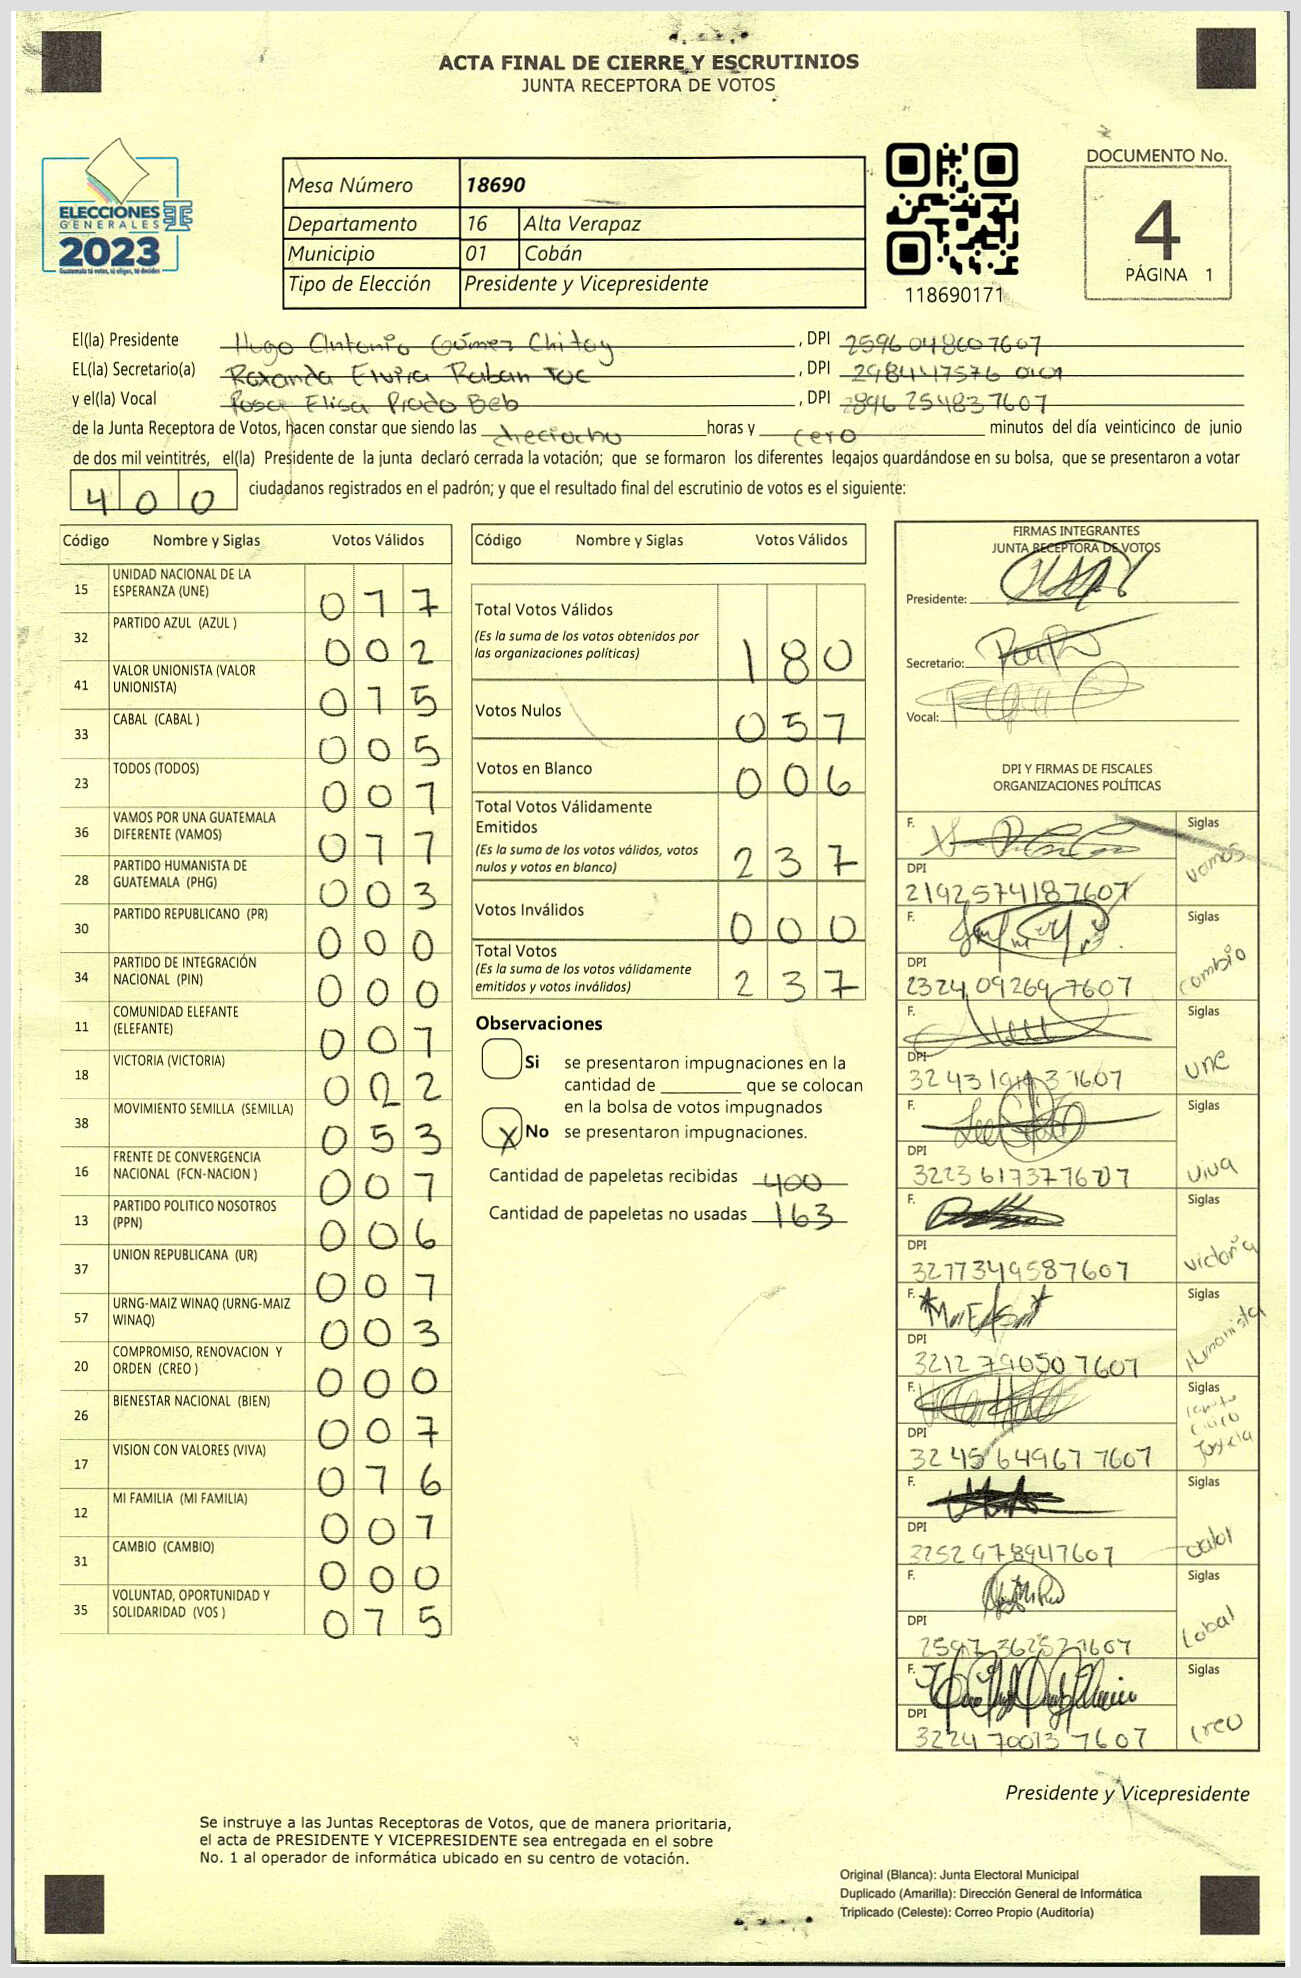 ACTA FINAL DE CIERRE Y ESCRUTINIOS
JUNTA RECEPTORA DE VOTOS
ELECCIONES
GENERALES
2023
Mesa Número 18690
Departamento 16 Alta Verapaz
Municipio 01 Cobán
Tipo de Elección Presidente y Vicepresidente
118690171
DOCUMENTO No.
4
PÁGINA 1
El(la) Presidente Hugo Antonio Gómez Chitay , DPI 2596048607607
EL(la) Secretario(a) Roxanda Elvira Raban Tuc , DPI 298447576 0101
y el(la) Vocal Rosa Elisa Prado Beb , DPI 2896 254837607
de la Junta Receptora de Votos, hacen constar que siendo las dieciocho horas y cero minutos del día veinticinco de junio
de dos mil veintitrés, el(la) Presidente de la junta declaró cerrada la votación; que se formaron los diferentes legajos guardándose en su bolsa, que se presentaron a votar
400 ciudadanos registrados en el padrón; y que el resultado final del escrutinio de votos es el siguiente:
Código Nombre y Siglas Votos Válidos
15 UNIDAD NACIONAL DE LA ESPERANZA (UNE) 017
32 PARTIDO AZUL (AZUL ) 002
41 VALOR UNIONISTA (VALOR UNIONISTA) 015
33 CABAL (CABAL ) 005
23 TODOS (TODOS) 001
36 VAMOS POR UNA GUATEMALA DIFERENTE (VAMOS) 017
28 PARTIDO HUMANISTA DE GUATEMALA (PHG) 003
30 PARTIDO REPUBLICANO (PR) 000
34 PARTIDO DE INTEGRACIÓN NACIONAL (PIN) 000
11 COMUNIDAD ELEFANTE (ELEFANTE) 001
18 VICTORIA (VICTORIA) 022
38 MOVIMIENTO SEMILLA (SEMILLA) 053
16 FRENTE DE CONVERGENCIA NACIONAL (FCN-NACION ) 001
13 PARTIDO POLITICO NOSOTROS (PPN) 006
37 UNION REPUBLICANA (UR) 001
57 URNG-MAIZ WINAQ (URNG-MAIZ WINAQ) 003
20 COMPROMISO, RENOVACION Y ORDEN (CREO ) 000
26 BIENESTAR NACIONAL (BIEN) 001
17 VISION CON VALORES (VIVA) 016
12 MI FAMILIA (MI FAMILIA) 001
31 CAMBIO (CAMBIO) 000
35 VOLUNTAD, OPORTUNIDAD Y SOLIDARIDAD (VOS ) 015
Código Nombre y Siglas Votos Válidos
Total Votos Válidos 180
(Es la suma de los votos obtenidos por
las organizaciones políticas)
Votos Nulos 057
Votos en Blanco 006
Total Votos Válidamente
Emitidos 237
(Es la suma de los votos válidos, votos
nulos y votos en blanco)
Votos Inválidos 000
Total Votos 237
(Es la suma de los votos válidamente
emitidos y votos inválidos)
Observaciones
Si se presentaron impugnaciones en la
cantidad de ________ que se colocan
en la bolsa de votos impugnados
X No se presentaron impugnaciones.
Cantidad de papeletas recibidas 400
Cantidad de papeletas no usadas 163
FIRMAS INTEGRANTES
JUNTA RECEPTORA DE VOTOS
Presidente:
Secretario:
Vocal:
DPI Y FIRMAS DE FISCALES
ORGANIZACIONES POLÍTICAS
F. Siglas vamos
DPI 2192574187607
F. Siglas cambio
DPI 2324 09269 7607
F. Siglas une
DPI
F. Siglas viva
DPI 3223 617377607
F. Siglas victoria
DPI 3277349587607
F. Siglas Humanista
DPI 3212 79050 7607
F. Siglas
DPI 3245 64967 7607
F. Siglas valor
DPI 3252 978947607
F. Siglas Cabal
DPI 2597 362527607
F. Siglas creo
DPI 3224 70013 7607
Presidente y Vicepresidente
Se instruye a las Juntas Receptoras de Votos, que de manera prioritaria,
el acta de PRESIDENTE Y VICEPRESIDENTE sea entregada en el sobre
No. 1 al operador de informática ubicado en su centro de votación.
Original (Blanca): Junta Electoral Municipal
Duplicado (Amarilla): Dirección General de Informática
Triplicado (Celeste): Correo Propio (Auditoría)